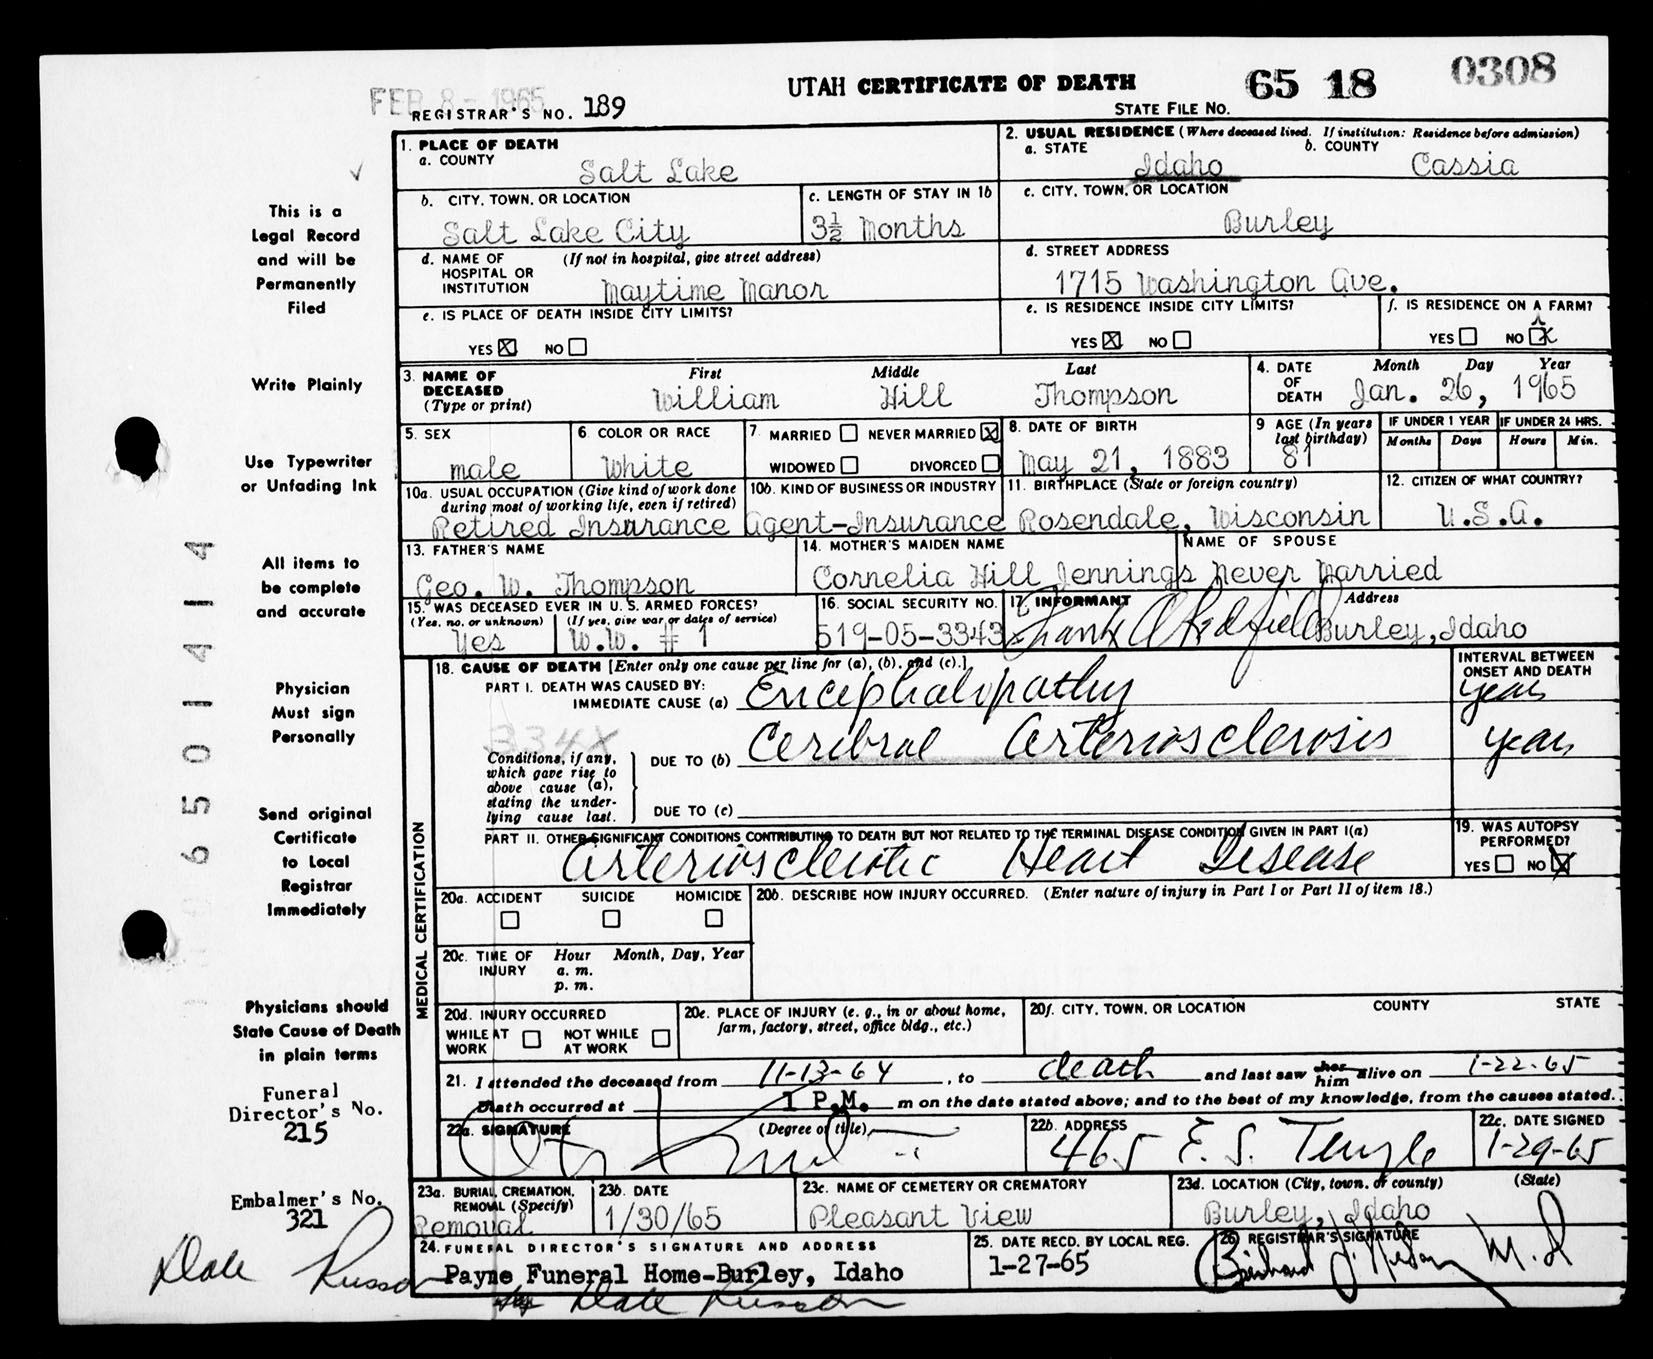 FEB 8 - 1965
UTAH CERTIFICATE OF DEATH
65 18
0308
REGISTRAR'S NO. 189
STATE FILE NO.
This is a
Legal Record
and will be
Permanently
Filed
Write Plainly
Use Typewriter
or Unfading Ink
All items to
be complete
and accurate
Physician
Must sign
Personally
Send original
Certificate
to Local
Registrar
Immediately
Physicians should
State Cause of Death
in plain terms
Funeral
Director's No.
215
Embalmer's No.
321
Dale Russon
650141414
1. PLACE OF DEATH
a. COUNTY
Salt Lake
2. USUAL RESIDENCE (Where deceased lived. If institution: Residence before admission)
a. STATE Idaho b. COUNTY Cassia
b. CITY, TOWN, OR LOCATION
Salt Lake City
c. LENGTH OF STAY IN 1b
3½ Months
c. CITY, TOWN, OR LOCATION
Burley
d. NAME OF (If not in hospital, give street address)
HOSPITAL OR
INSTITUTION Maytime Manor
d. STREET ADDRESS
1715 Washington Ave.
e. IS PLACE OF DEATH INSIDE CITY LIMITS?
YES X NO
e. IS RESIDENCE INSIDE CITY LIMITS?
YES X NO
f. IS RESIDENCE ON A FARM?
YES NO X
3. NAME OF First Middle Last
DECEASED
(Type or print) William Hill Thompson
4. DATE Month Day Year
OF
DEATH Jan. 26, 1965
5. SEX
male
6. COLOR OR RACE
White
7. MARRIED NEVER MARRIED X
WIDOWED DIVORCED
8. DATE OF BIRTH
May 21, 1883
9 AGE (In years
last birthday)
81
IF UNDER 1 YEAR
Months Days
IF UNDER 24 HRS.
Hours Min.
10a. USUAL OCCUPATION (Give kind of work done
during most of working life, even if retired)
Retired Insurance Agent-Insurance
10b. KIND OF BUSINESS OR INDUSTRY
11. BIRTHPLACE (State or foreign country)
Rosendale, Wisconsin
12. CITIZEN OF WHAT COUNTRY?
U.S.A.
13. FATHER'S NAME
Geo. W. Thompson
14. MOTHER'S MAIDEN NAME
Cornelia Hill Jennings
NAME OF SPOUSE
Never Married
15. WAS DECEASED EVER IN U.S. ARMED FORCES?
(Yes, no, or unknown) (If yes, give war or dates of service)
Yes W.W. # 1
16. SOCIAL SECURITY NO.
519-05-3343
17. INFORMANT Address
Frank O Redfield Burley, Idaho
MEDICAL CERTIFICATION
18. CAUSE OF DEATH [Enter only one cause per line for (a), (b), and (c).]
INTERVAL BETWEEN
ONSET AND DEATH
PART I. DEATH WAS CAUSED BY:
IMMEDIATE CAUSE (a) Encephalopathy years
334X
Conditions, if any,
which gave rise to
above cause (a),
stating the under-
lying cause last.
DUE TO (b) Cerebral Arteriosclerosis years
DUE TO (c)
PART II. OTHER SIGNIFICANT CONDITIONS CONTRIBUTING TO DEATH BUT NOT RELATED TO THE TERMINAL DISEASE CONDITION GIVEN IN PART I(a)
Arteriosclerotic Heart Disease
19. WAS AUTOPSY
PERFORMED?
YES NO X
20a. ACCIDENT SUICIDE HOMICIDE
20b. DESCRIBE HOW INJURY OCCURRED. (Enter nature of injury in Part I or Part II of item 18.)
20c. TIME OF Hour Month, Day, Year
INJURY a. m.
p. m.
20d. INJURY OCCURRED
WHILE AT WORK NOT WHILE AT WORK
20e. PLACE OF INJURY (e. g., in or about home,
farm, factory, street, office bldg., etc.)
20f. CITY, TOWN, OR LOCATION COUNTY STATE
21. I attended the deceased from 11-13-64, to death and last saw her him alive on 1-22-65
Death occurred at 1 P.M. m on the date stated above; and to the best of my knowledge, from the causes stated.
22a. SIGNATURE (Degree or title)
22b. ADDRESS
465 E. S. Temple
22c. DATE SIGNED
1-29-65
23a. BURIAL, CREMATION,
REMOVAL (Specify)
Removal
23b. DATE
1/30/65
23c. NAME OF CEMETERY OR CREMATORY
Pleasant View
23d. LOCATION (City, town, or county) (State)
Burley, Idaho
24. FUNERAL DIRECTOR'S SIGNATURE AND ADDRESS
Payne Funeral Home-Burley, Idaho
by Dale Russon
25. DATE RECD. BY LOCAL REG.
1-27-65
26 REGISTRAR'S SIGNATURE
M.D